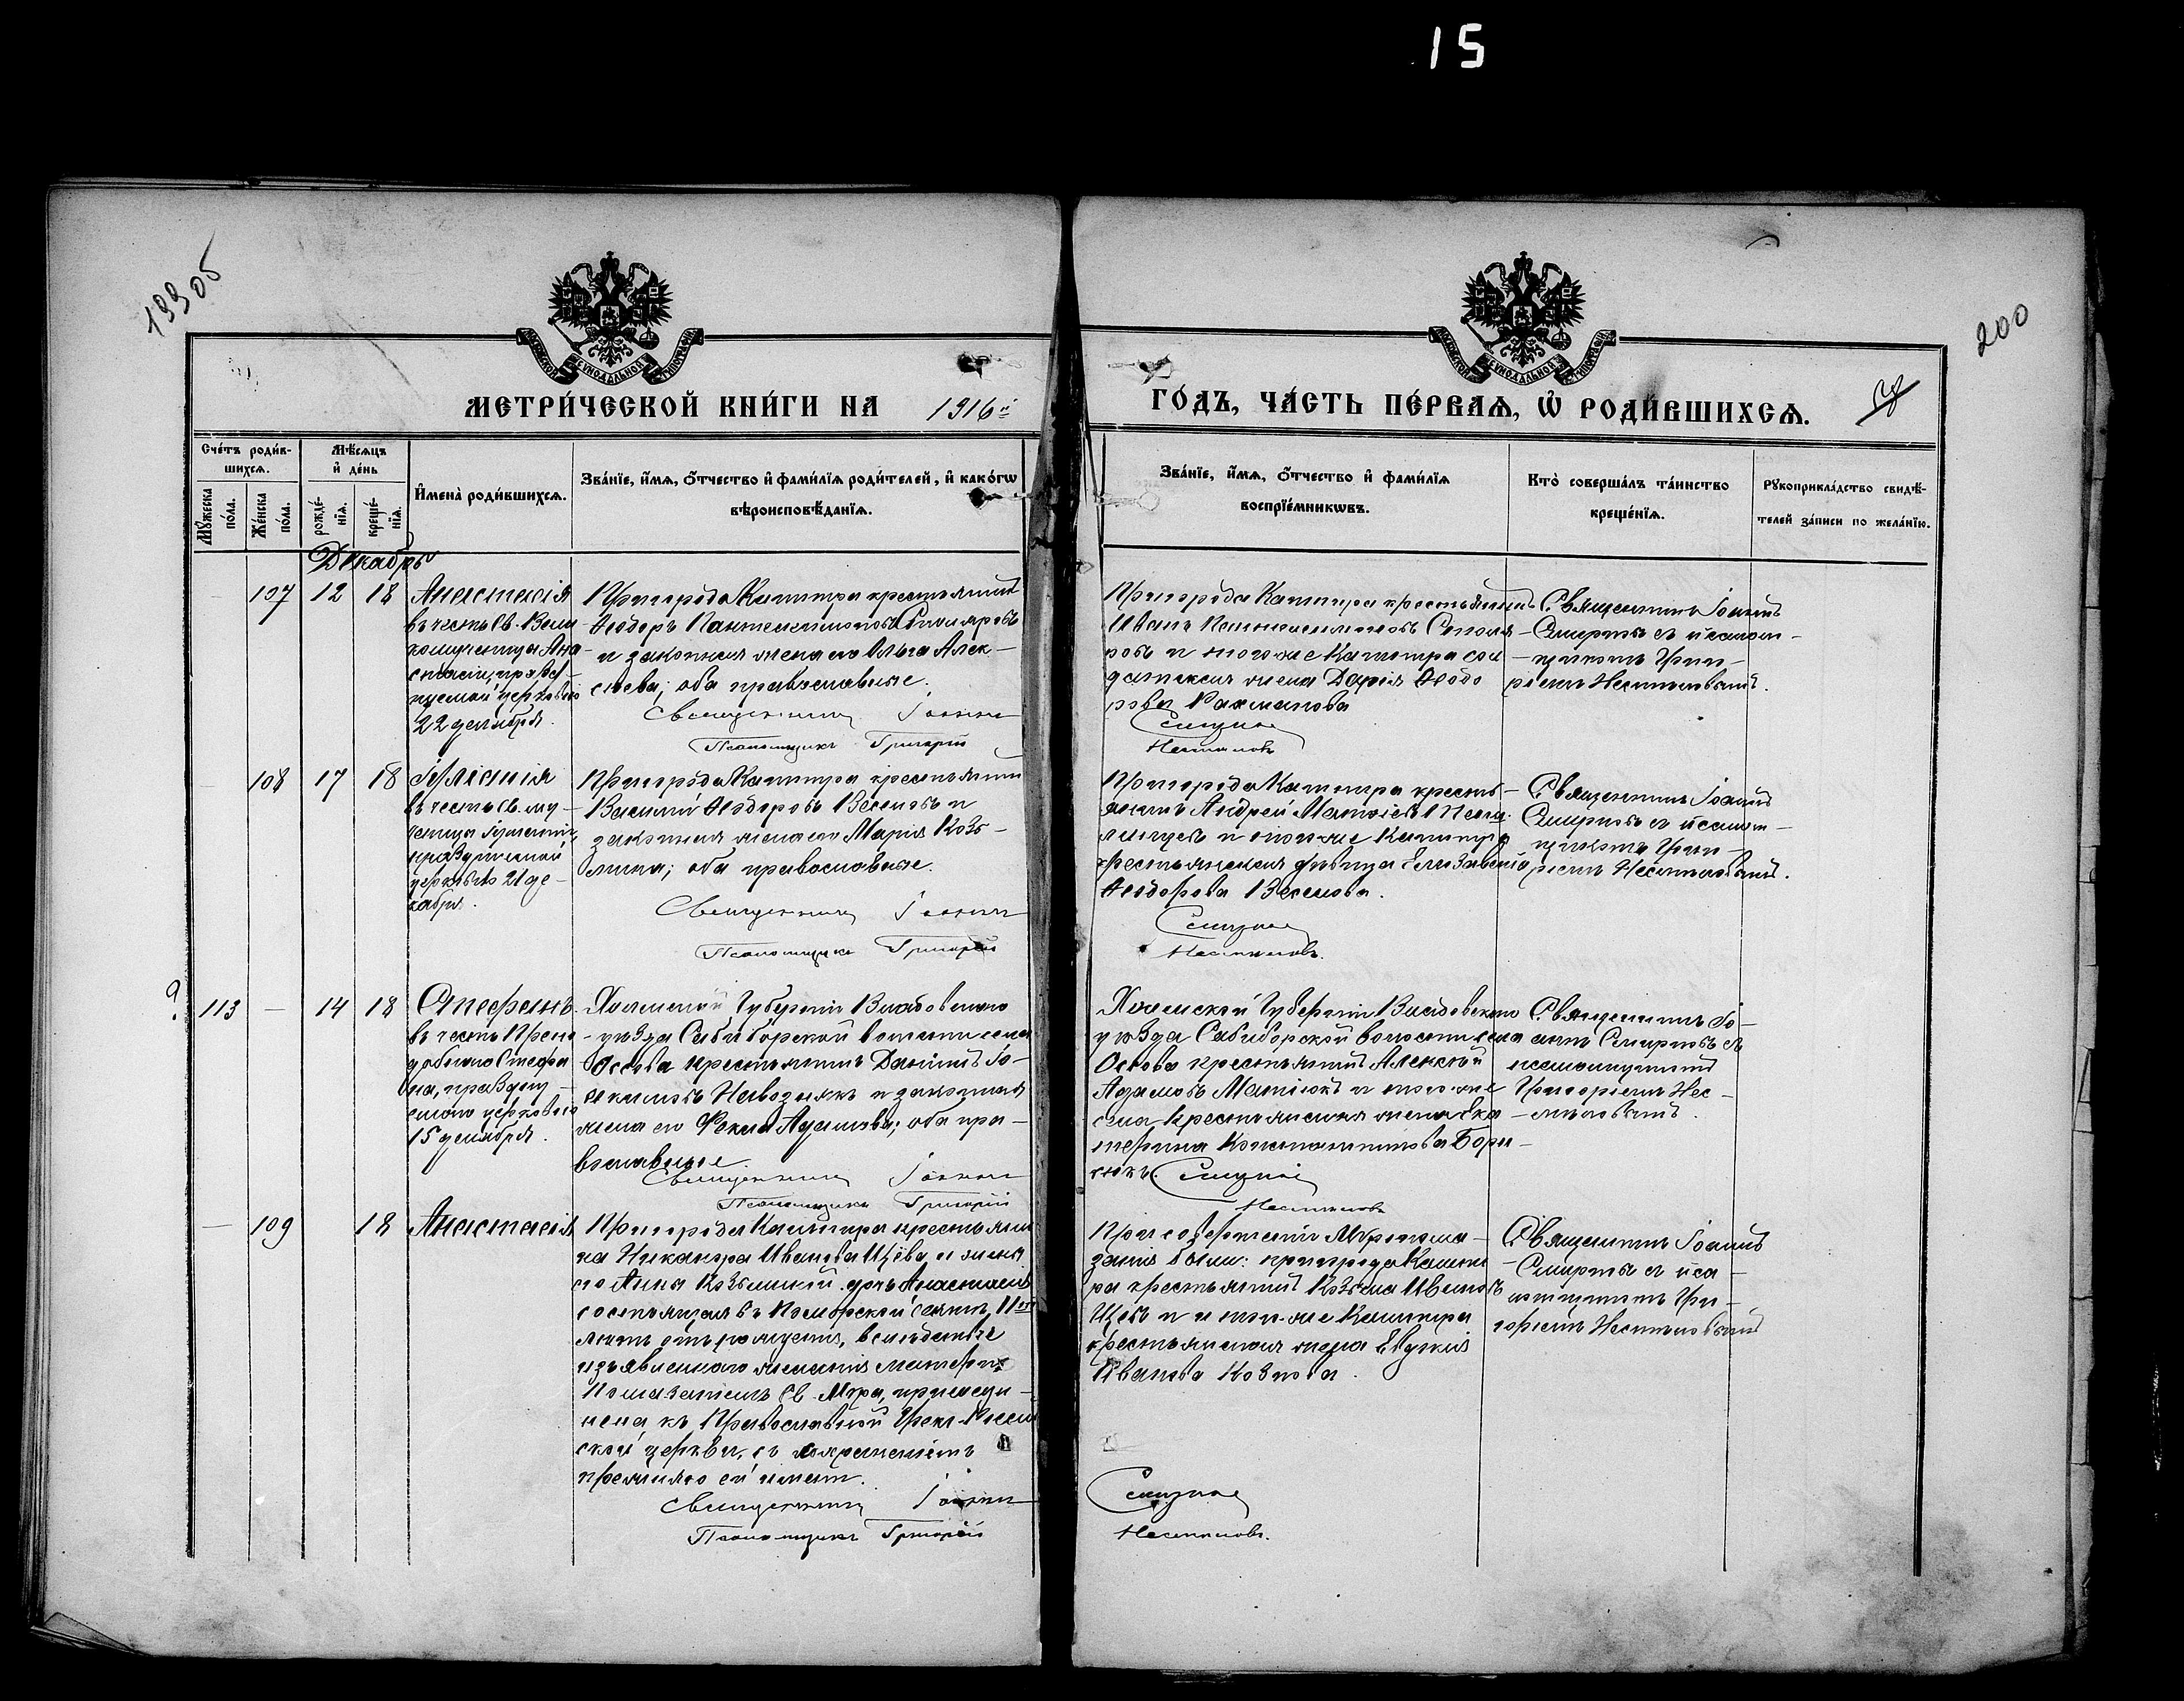 15
199 об
200
МЕТРИ́ЧЕСКОЙ КНИ́ГИ НА 1916й
ГО́ДЪ, ЧА́СТЬ ПЕ́РВАѦ, Ѡ҆ РОДИ́ВШИХСѦ.
Сче́тъ роди́в-
шихсѧ.
Мѣ́сѧцъ
и҆ де́нь
Мꙋ́жеска
по́ла.
Же́нска
по́ла.
рожде́-
нїѧ.
креще́-
нїѧ.
И҆мена̀ роди́вшихсѧ.
Зва́нїе, и҆́мѧ, ѻ҆́тчество и҆ фами́лїѧ роди́телей, и҆ како́гѡ
вѣроисповѣ́данїѧ.
Зва́нїе, и҆́мѧ, ѻ҆́тчество и҆ фами́лїѧ
воспрїе́мникѡвъ.
Кто̀ соверша́лъ та́инство
креще́нїѧ.
Рꙋкоприкла́дство свидѣ́-
телей за́писи по жела́нїю.
Декабрь
107 12 18
Анастасія
въ честь Св. Вели
комученицы Ана
стасіи, празд
нуемой церковью
22 декабря.
Пригорода Кашпира крестьянинъ
Ѳеодоръ Пантелеимоновъ Столяровъ
и законная жена его Ольга Алек-
сѣева; оба православные.
Священникъ Іоаннъ
Псаломщикъ Григорій
Пригорода Кашпира крестьянинъ
Иванъ Пантелеимоновъ Столя-
ровъ и того-же Кашпира сол
датская жена Дарія Ѳеодо
рова Рахманова
Смирнов
Несмѣловъ
Священникъ Іоаннъ
Смирновъ съ псалом-
щикомъ Григо-
ріемъ Несмѣловымъ.
108 17 18
Іуліанія
въ честь Св. му-
ченицы Іуліаніи,
празднуемой
церковью 21 де-
кабря.
Пригорода Кашпира крестьянинъ
Василій Ѳеодоровъ Веселовъ и
законная жена его Марія Козь-
мина; оба православные.
Священникъ Іоаннъ
Псаломщикъ Григорій
Пригорода Кашпира кресть-
янинъ Андрей
и того-же Кашпира
крестьянская дѣвица Елизавета
Ѳеодорова Веселова.
Смирнов
Несмѣловъ.
Священникъ Іоаннъ
Смирновъ съ псалом-
щикомъ Григо-
ріемъ Несмѣловымъ.
? 113 — 14 18
Стефанъ
въ честь Препо
добнаго Стефа
на, праздну-
емаго церковью
15 декабря.
Холмской Губерніи Влодовскаго
уѣзда Сабиборской волости села
Осова крестьянинъ Даніилъ Іо-
акимовъ Наводнякъ и законная
жена его Ѳекла Адамова; оба пра-
вославные
Священникъ Іоаннъ
Псаломщикъ Григорій
Холмской Губерніи Влодовскаго
уѣзда Сабиборской волости села
Осова крестьянинъ Алексѣй
Адамовъ Матіюкъ и того-же
села крестьянская жена Ека
терина Константинова Бори-
сюкъ.
Смирнов
Несмѣловъ
Священникъ Іо-
аннъ Смирновъ съ
псаломщикомъ
Григоріемъ Нес-
мѣловымъ.
— 109 18
Анастасія
Пригорода Кашпира крестьяни
на Никанора Иванова Щёва и жены
его Анны Козьминой дочь Анастасія
состоящая въ Поморской сектѣ, 11
лѣтъ отъ рожденія, вслѣдствіе
изъявленнаго желанія матери
помазаніемъ Св. Мѵра, присоеди-
нена къ Православной Греко-Россій
ской церкви, съ нареченіемъ
прежняго ей имени.
Священникъ Іоаннъ
Псаломщикъ Григорій
При совершеніи Мѵропома-
занія были: пригорода Кашпи
ра крестьянинъ Козьма Ивановъ
Щёвъ и того-же Кашпира
крестьянская жена Евдокія
Иванова Козлова.
Смирнов
Несмѣловъ.
Священникъ Іоаннъ
Смирновъ съ пса-
ломщикомъ Гри-
горіемъ Несмѣловымъ